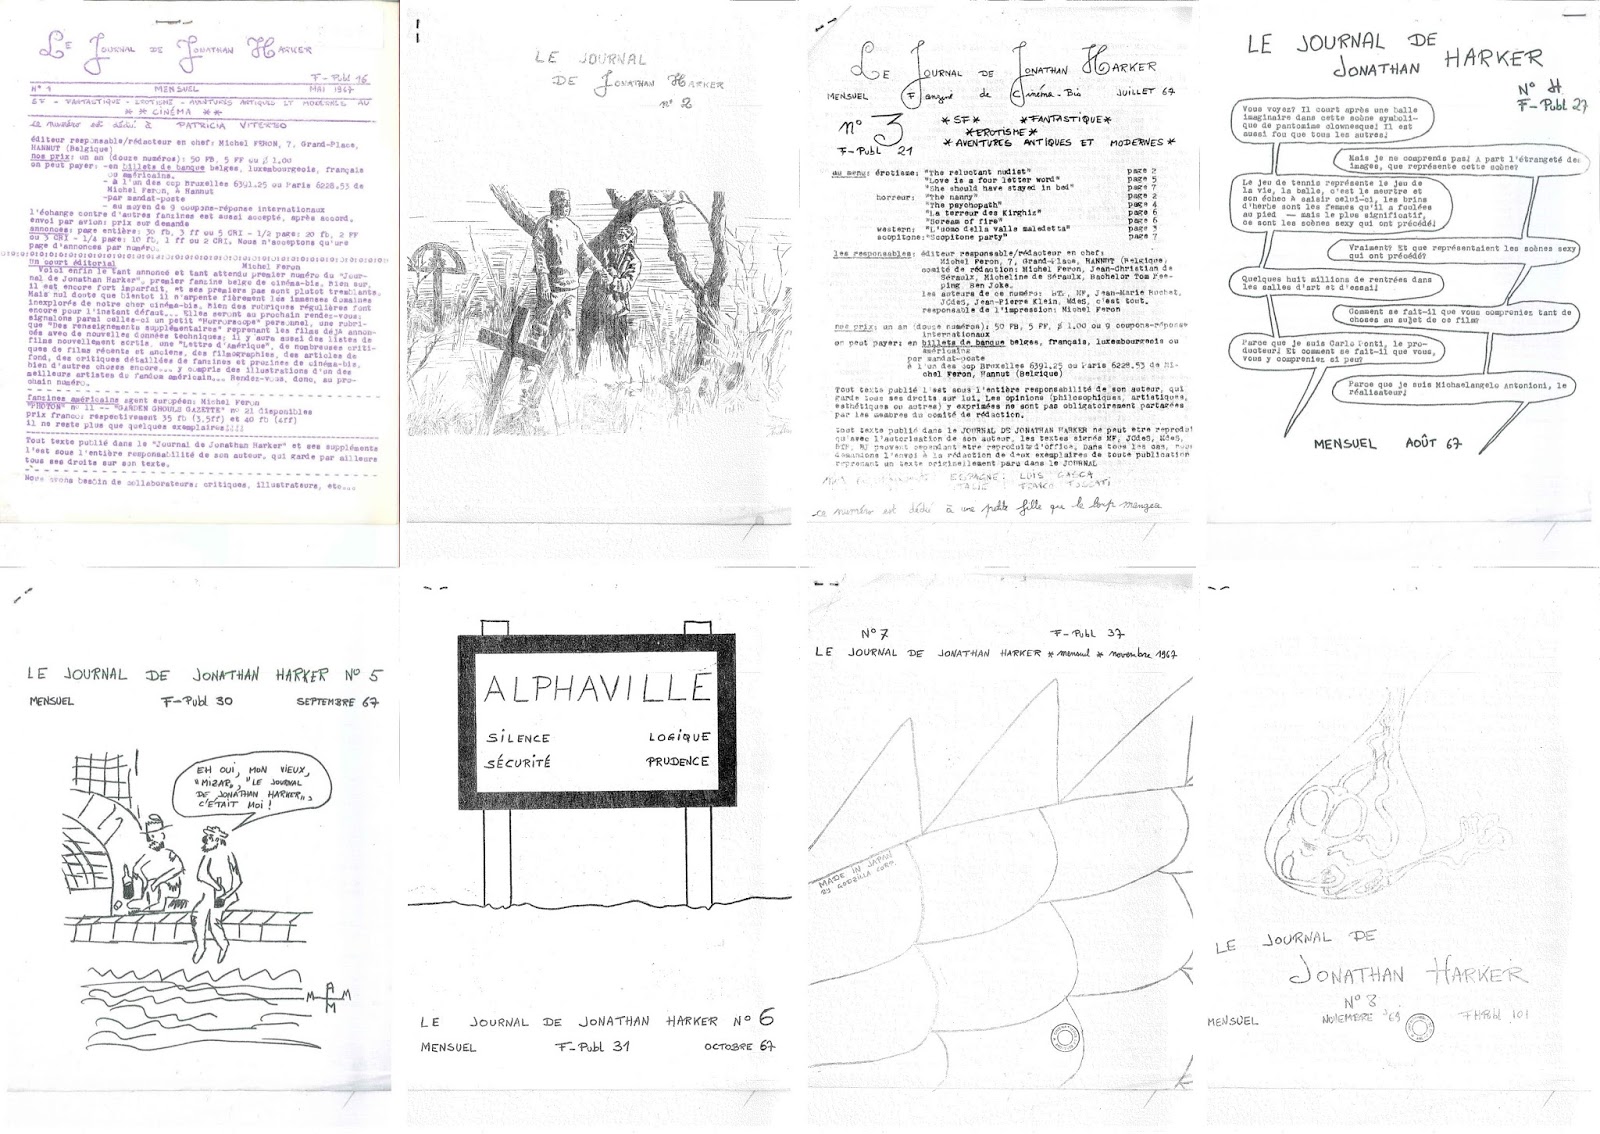 LE JOURNAL DE JONATHAN HARKER
F-Publ 16
N° 1 MENSUEL MAI 1967
SF - FANTASTIQUE - EROTISME - AVENTURES ANTIQUES ET MODERNES AU
* * CINÉMA * *
ce numéro est dédié à PATRICIA VITERBO
éditeur responsable/rédacteur en chef: Michel FERON, 7, Grand-Place,
HANNUT (Belgique)
nos prix: un an (douze numéros): 50 FB, 5 FF ou $ 1.00
on peut payer: -en billets de banque belges, luxembourgeois, français
ou américains.
- à l'un des ccp Bruxelles 6391.25 ou Paris 6228.53 de
Michel Feron, à Hannut
-par mandat-poste
- au moyen de 9 coupons-réponse internationaux
l'échange contre d'autres fanzines est aussi accepté, après accord.
envoi par avion: prix sur demande
annonces: page entière: 30 fb, 3 ff ou 5 CRI - 1/2 page: 20 fb, 2 FF
ou 3 CRI - 1/4 page: 10 fb, 1 ff ou 2 CRI. Nous n'acceptons qu'une
page d'annonces par numéro.
Un court éditorial Michel Feron
Voici enfin le tant annoncé et tant attendu premier numéro du "Jour-
nal de Jonathan Harker", premier fanzine belge de cinéma-bis. Bien sur,
il est encore fort imparfait, et ses premiers pas sont plutot tremblants.
Mais nul doute que bientot il n'arpente fièrement les immenses domaines
inexplorés de notre cher cinéma-bis. Bien des rubriques régulières font
encore pour l'instant défaut... Elles seront au prochain rendez-vous:
signalons parmi celles-ci un petit "Horroscope" personnel, une rubri-
que "Des renseignements supplémentaires" reprenant les films déjà annon-
cés avec de nouvelles données techniques; il y aura aussi des listes de
films nouvellement sortis, une "Lettre d'Amérique", de nombreuses criti-
ques de films récents et anciens, des filmographies, des articles de
fond, des critiques détaillées de fanzines et prozines de cinéma-bis,
bien d'autres choses encore... y compris des illustrations d'un des
meilleurs artistes du fandom américain... Rendez-vous, donc, au pro-
chain numéro.
fanzines américains agent européen: Michel Feron
"PHOTON" n° 11 -- "GARDEN GHOULS GAZETTE" n° 21 disponibles
prix franco: respectivement 35 fb (3,5ff) et 40 fb (4ff)
il ne reste plus que quelques exemplaires!!!!
Tout texte publié dans le "Journal de Jonathan Harker" et ses suppléments
l'est sous l'entière responsabilité de son auteur, qui garde par ailleurs
tous ses droits sur son texte.
Nous avons besoin de collaborateurs: critiques, illustrateurs, etc...
LE JOURNAL
DE JONATHAN HARKER
n° 2
LE JOURNAL DE JONATHAN HARKER
MENSUEL Fanzine de Cinéma-Bis JUILLET 67
N° 3
F-Publ 21
*SF* *FANTASTIQUE*
*EROTISME*
*AVENTURES ANTIQUES ET MODERNES*
au menu: érotisme: "The reluctant nudist" page 2
"Love is a four letter word" page 5
"She should have stayed in bed" page 7
horreur: "The nanny" page 2
"The psychopath" page 4
"La terreur des Kirghiz" page 6
"Scream of fire" page 6
western: "L'uomo della valle maledetta" page 3
scopitone: "Scopitone party" page 7
les responsables: éditeur responsable/rédacteur en chef:
Michel Feron, 7, Grand-Place, HANNUT (Belgique)
comité de rédaction: Michel Feron, Jean-Christian de
Séraulx, Micheline de Séraulx, Bachelor Tom Pee-
ping Ben Joke.
les auteurs de ce numéro: BT, MF, Jean-Marie Rochet,
JCdeS, Jean-Pierre Klein, MdeS, c'est tout.
responsable de l'impression: Michel Feron
nos prix: un an (douze numéros): 50 FB, 5 FF, $ 1.00 ou 9 coupons-réponse
internationaux
on peut payer: en billets de banque belges, français, luxembourgeois ou
américains
par mandat-poste
à l'un des ccp Bruxelles 6391.25 ou Paris 6228.53 de Mi-
chel Feron, Hannut (Belgique)
Tout texte publié l'est sous l'entière responsabilité de son auteur, qui
garde tous ses droits sur lui. Les opinions (philosophiques, artistiques,
esthétiques ou autres) y exprimées ne sont pas obligatoirement partagées
par les membres du comité de rédaction.
tout texte publié dans le JOURNAL DE JONATHAN HARKER ne peut être reprodui
qu'avec l'autorisation de son auteur, les textes signés MF, JCdeS, MdeS,
peuvent être reproduits d'office. Dans tous les cas, nous
demandons l'envoi à la rédaction de deux exemplaires de toute publication
reprenant un texte originellement paru dans le JOURNAL
ESPAGNE: LUIS GASCA
ITALIE FRANCO
ce numéro est dédié à une petite fille que le loup mangea
LE JOURNAL DE
JONATHAN HARKER
N° 4
F-Publ 27
Vous voyez? Il court après une balle
imaginaire dans cette scène symboli-
que de pantomime clownesque! Il est
aussi fou que tous les autres!
Mais je ne comprends pas! A part l'étrangeté des
images, que représente cette scène?
Le jeu de tennis représente le jeu de
la vie, la balle, c'est le meurtre et
son échec à saisir celui-ci, les brins
d'herbe sont les femmes qu'il a foulées
au pied -- mais le plus significatif,
ce sont les scènes sexy qui ont précédé!
Vraiment? Et que représentaient les scènes sexy
qui ont précédé?
Quelques huit millions de rentrées dans
les salles d'art et d'essai!
Comment se fait-il que vous compreniez tant de
choses au sujet de ce film?
Parce que je suis Carlo Ponti, le pro-
ducteur! Et comment se fait-il que vous,
vous y compreniez si peu?
Parce que je suis Michaelangelo Antonioni, le
réalisateur!
MENSUEL AOÛT 67
LE JOURNAL DE JONATHAN HARKER N° 5
MENSUEL F-Publ 30 SEPTEMBRE 67
EH OUI, MON VIEUX,
"MIZAR", "LE JOURNAL
DE JONATHAN HARKER",
C'ÉTAIT MOI!
ALPHAVILLE
SILENCE LOGIQUE
SÉCURITÉ PRUDENCE
LE JOURNAL DE JONATHAN HARKER N° 6
MENSUEL F-Publ 31 OCTOBRE 67
N° 7 F-Publ 37
LE JOURNAL DE JONATHAN HARKER * mensuel * novembre 1967
MADE IN JAPAN
BY GODZILLA CORP.
LE JOURNAL DE
JONATHAN HARKER
N° 8
MENSUEL NOVEMBRE '69 FHPubl 101